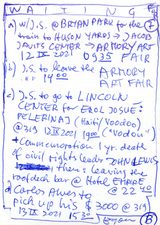 WAITING
a) w/J.S. @ BRIAN PARK for the 7
train to HUSON YARDS → JACOB
JAVITS CENTER → ARMORY ART
12 IX 2021 0935 FAIR
b) J.S. to leave the ARMORY
@ 1400 ART FAIR
c) J.S. to go to LINCOLN
CENTER for EROL JOSUE:
PELERINAJ (Haiti/Voodoo)
@ 319 12 IX 2021 1900 ("VODOU")
+ Commemoration 1 yr. death
of civil rights leader JOHN LEWIS
then: leaving the
rooftop bar @ Hotel EMPIRE
@ 2240
d) Carlos Alves to
pick up his $ 3000 @ 319
13 IX 2021 1530
B